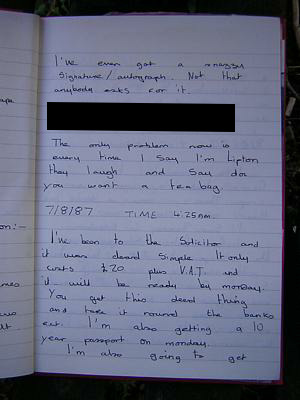 I've even got a snazzy
signature/autograph. Not that
anybody asks for it.
The only problem now is
every time I say I'm Lipton
they laugh and say do
you want a tea bag.
7/8/87 TIME 4.25am.
I've been to the Solicitor and
it was dead simple. It only
costs £20 plus V.A.T. and
it will be ready by monday.
You get this deed thing
and take it round the banks
ect. I'm also getting a 10
year passport on monday.
I'm also going to get
on:-